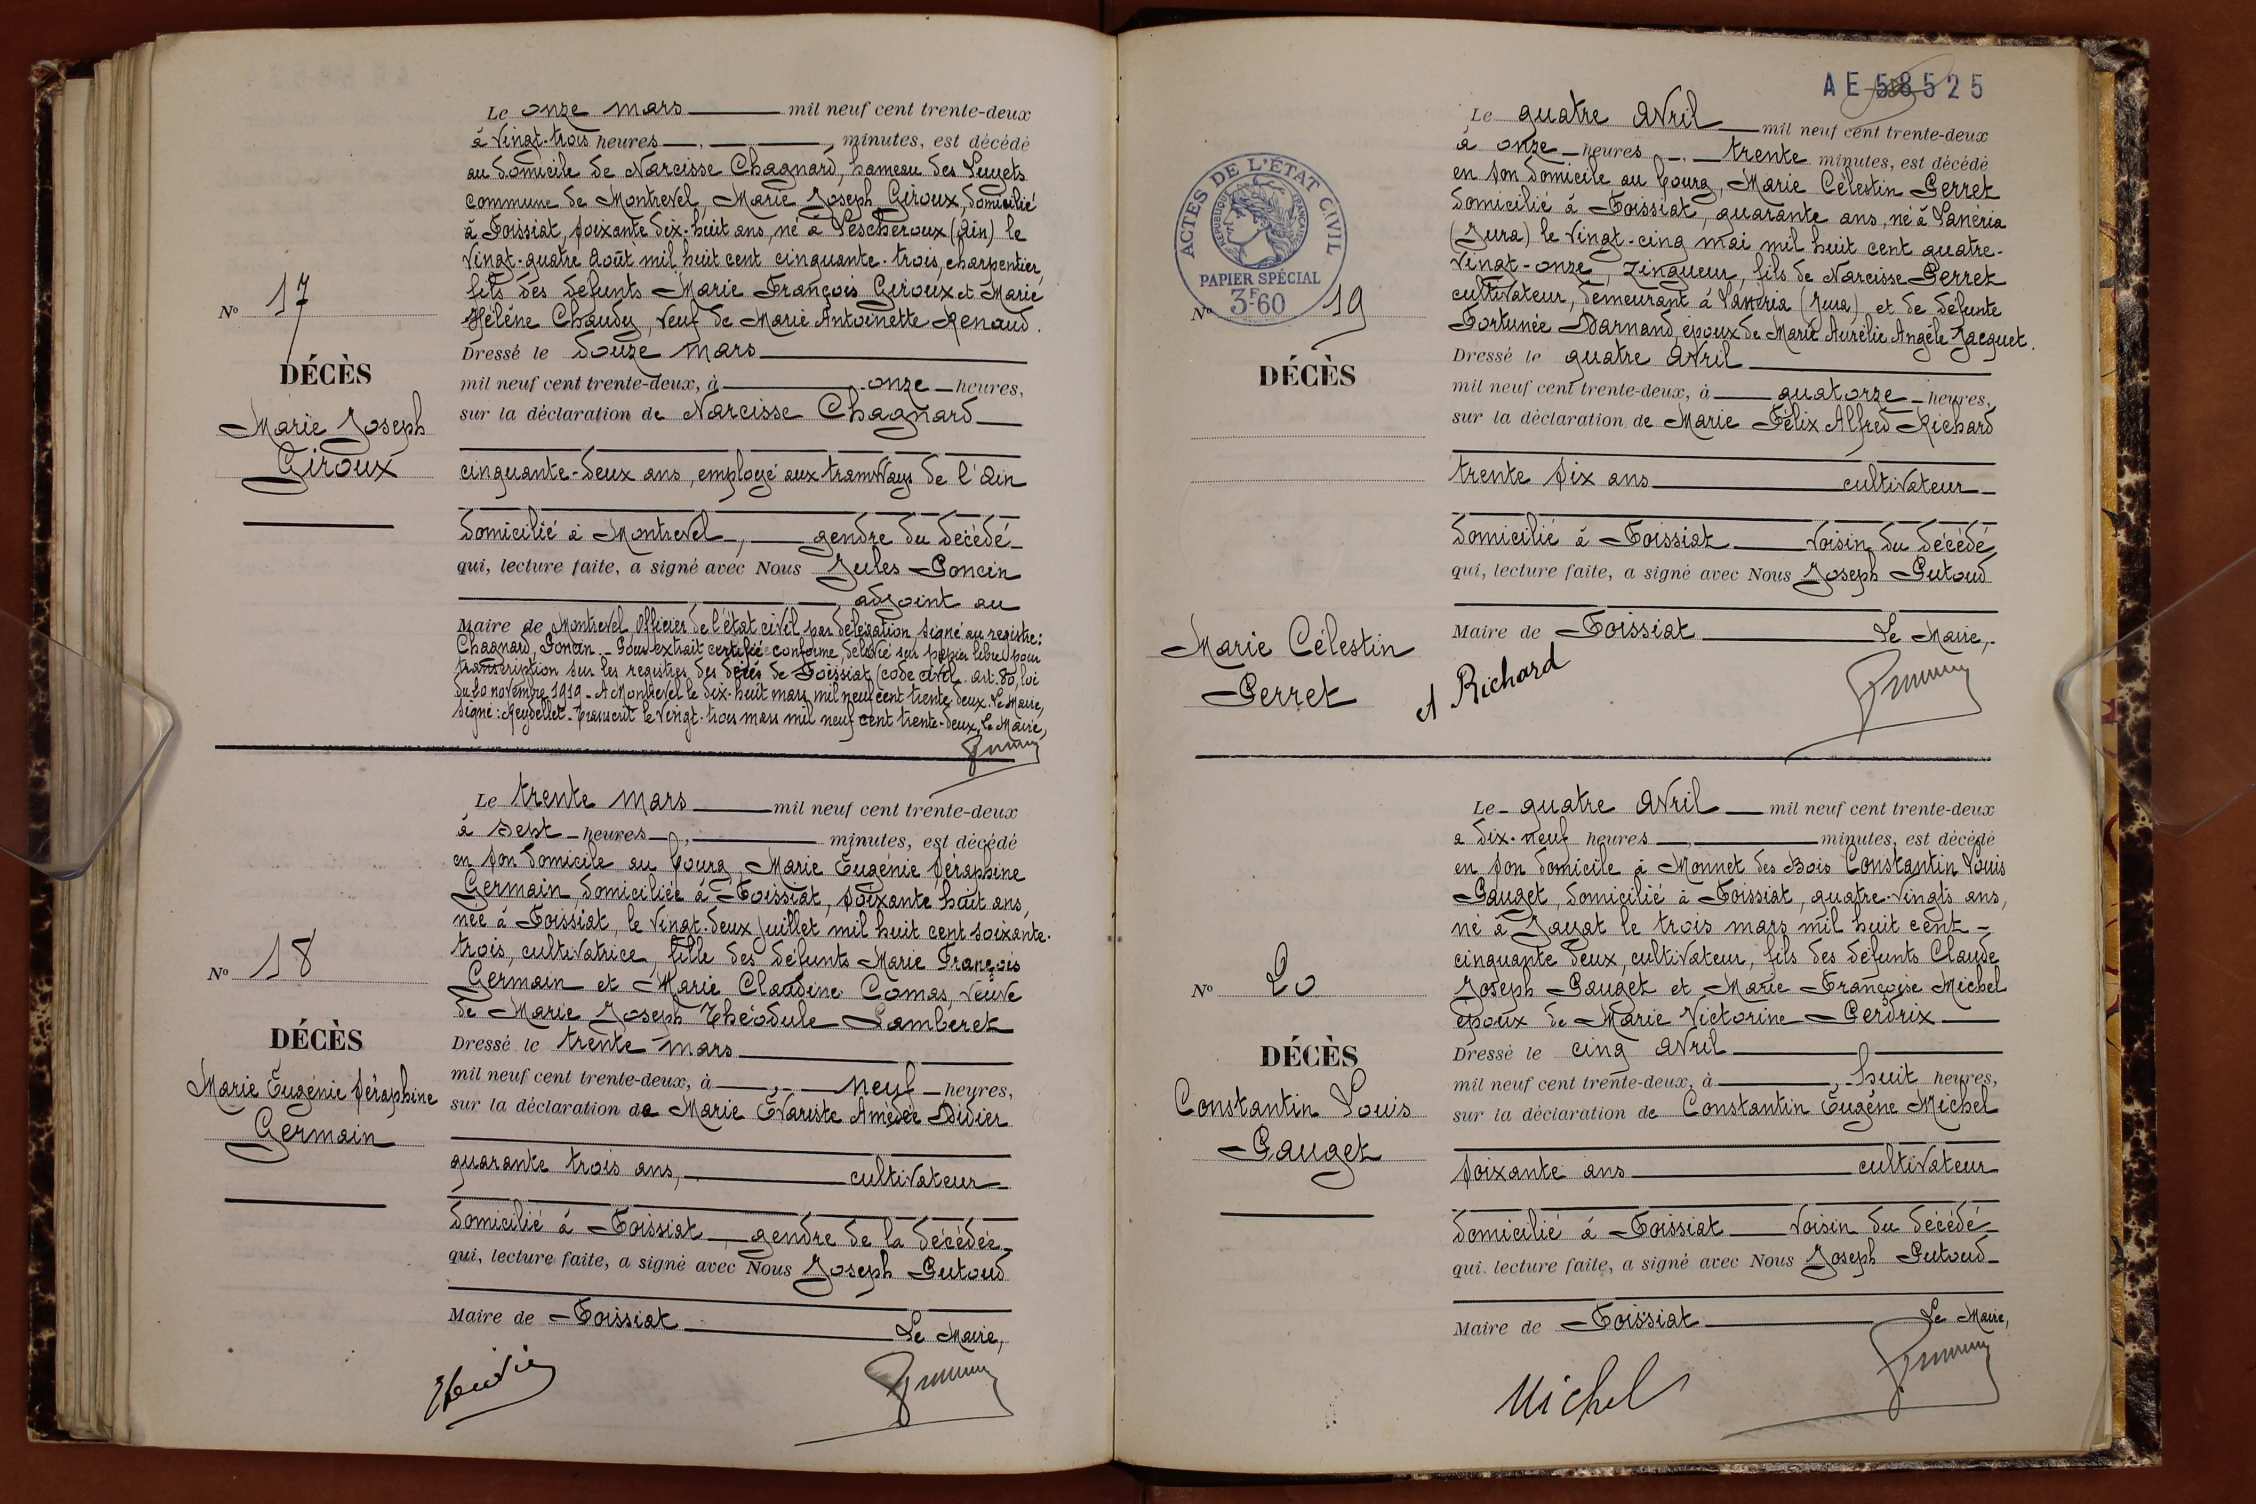 Le onze mars mil neuf cent trente-deux
à vingt-trois heures minutes, est décédé
au domicile de Narcisse Chagnard, hameau des Luyets
commune de Montrevel, Marie Joseph Giroux, domicilié
à Foissiat, soixante dix-huit ans, né à Lescheroux (Ain) le
vingt-quatre Août mil huit cent cinquante-trois, charpentier,
fils des défunts Marie François Giroux et Marie
Hélène Chaudy, veuf de Marie Antoinette Renaud.
Nº 17
DÉCÈS
Marie Joseph
Giroux
Dressé le douze mars
mil neuf cent trente-deux, à onze heures,
sur la déclaration de Narcisse Chagnard
cinquante-deux ans, employé aux tramways de l'Ain
domicilié à Montrevel, gendre du décédé
qui, lecture faite, a signé avec Nous Jules Poncin
adjoint au
Maire de Montrevel, Officier de l'état civil par délégation, signé au registre:
Chagnard, Poncin. - Pour extrait certifié conforme, délivré sur papier libre pour
transcription sur les registres des décès de Foissiat (code civil art. 80, loi
du 20 novembre 1919 - A Montrevel le dix-huit mars mil neuf cent trente-deux. Le Maire,
signé: Reydellet - Transcrit le vingt-trois mars mil neuf cent trente-deux, Le Maire,
Le trente mars mil neuf cent trente-deux
à sept heures, minutes, est décédé
en son domicile au bourg, Marie Eugénie Séraphine
Germain domiciliée à Foissiat, soixante huit ans,
née à Foissiat, le vingt-deux juillet mil huit cent soixante-
trois, cultivatrice, fille des défunts Marie François
Germain et Marie Claudine Comas, veuve
de Marie Joseph Théodule Lamberet
Nº 18
DÉCÈS
Marie Eugénie Séraphine
Germain
Dressé le trente mars
mil neuf cent trente-deux, à neuf heures,
sur la déclaration de Marie Evariste Amédée Didier
quarante trois ans, cultivateur
domicilié à Foissiat, gendre de la décédée
qui, lecture faite, a signé avec Nous Joseph Putoud
Maire de Foissiat Le Maire,
AE 58525
ACTES DE L'ÉTAT CIVIL
RÉPUBLIQUE FRANÇAISE
PAPIER SPÉCIAL
3F60
Le quatre Avril mil neuf cent trente-deux
à onze heures trente minutes, est décédé
en son domicile au bourg, Marie Célestin Perret
domicilié à Foissiat, quarante ans, né à Lanéria
(Jura) le vingt-cinq mai mil huit cent quatre-
vingt-onze, zingueur, fils de Narcisse Perret
cultivateur, demeurant à Lanéria (Jura) et de défunte
Fortunée Darnand, époux de Marie Aurélie Angèle Jacquet.
Nº 19
DÉCÈS
Marie Célestin
Perret
Dressé le quatre Avril
mil neuf cent trente-deux, à quatorze heures,
sur la déclaration de Marie Félix Alfred Richard
trente six ans cultivateur
domicilié à Foissiat voisin du décédé
qui, lecture faite, a signé avec Nous Joseph Putoud
Maire de Foissiat Le Maire,
A Richard
Le quatre Avril mil neuf cent trente-deux
à dix-neuf heures, minutes, est décédé
en son domicile à Monnet des Bois Constantin Louis
Pauget, domicilié à Foissiat, quatre-vingts ans,
né à Jayat le trois mars mil huit cent
cinquante deux, cultivateur, fils des défunts Claude
Joseph Pauget et Marie Françoise Michel
époux de Marie Victorine Perdrix
Nº 20
DÉCÈS
Constantin Louis
Pauget
Dressé le cinq Avril
mil neuf cent trente-deux, à huit heures,
sur la déclaration de Constantin Eugène Michel
soixante ans cultivateur
domicilié à Foissiat voisin du décédé
qui, lecture faite, a signé avec Nous Joseph Putoud
Maire de Foissiat Le Maire,
Michel